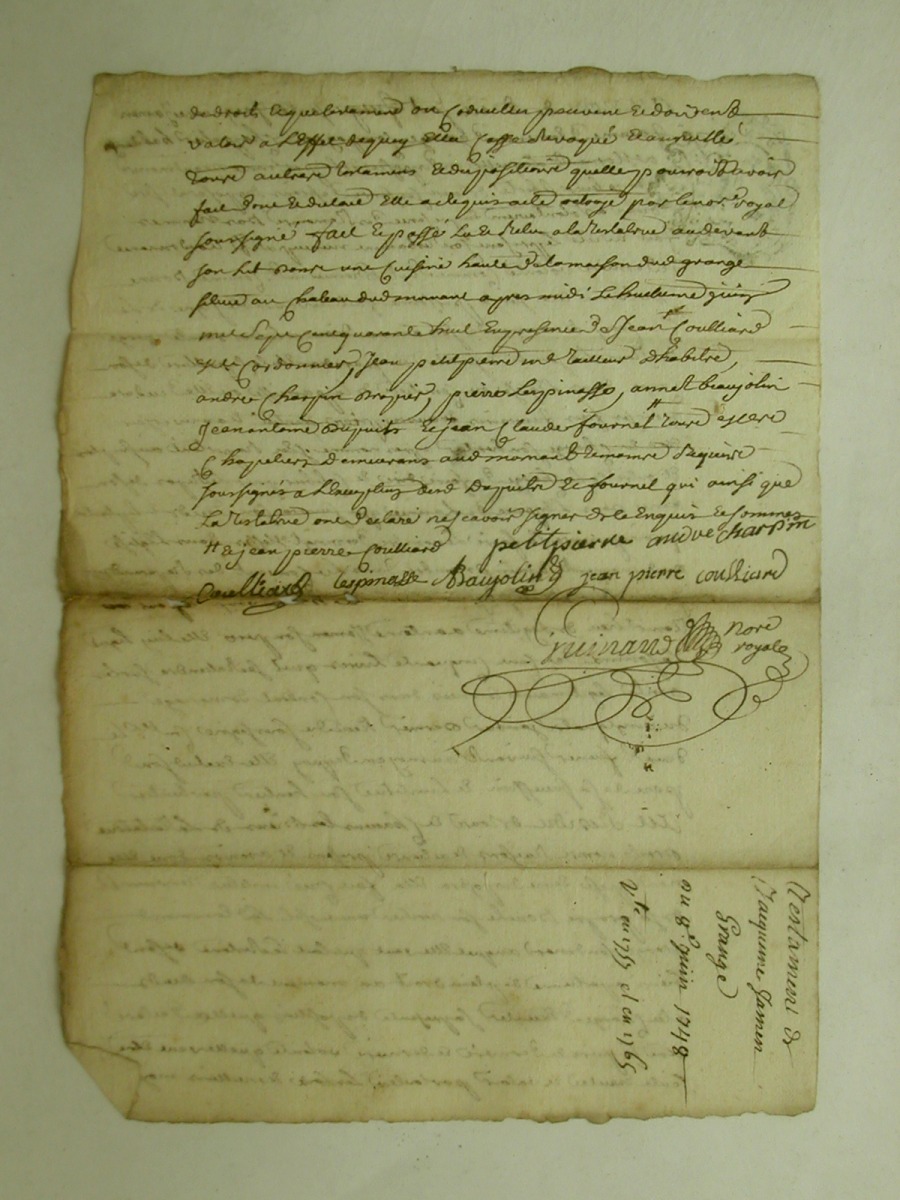 de droits et que testament ou Codicilles peuvent et doivent
valoir a L'effet de quoy Elle Casse revoque et annulle
tous autres testamens et dispositions quelle pourroit avoir
fait dont et du tout Elle a requis acte octroyé par le no.re royal
soussigné fait et passé Lu et relu a la testatrice au devant
son Lit dans une Cuisine haute de la maison dud grange
située au Chateau dud mornant apres midi Le huitieme juin
mil Sept Cent quarante huit En presence de Jean Coulliard
m.e Cordonnier, Jean petitpierre m.e tailleur d'habits,
andré Charpin drapier, pierre Lespinasse, annet beaujolin
Jean antoine dupuits et jean Claude fournel tous
Chapeliers demeurans aud mornant temoins requis
soussignés a L'Exception desd Dupuits et fournel qui ainsi que
La testatrice ont declaré ne scavoir signer de ce Enquis et sommés
# et jean pierre Coulliard petitpierre andre charpin
Coulliard Lespinasse Baujolin jean pierre coulliard
Guinand no.re royal
Testament de
Jacqueme
Grange
du 8.e juin 1748
V.te en 1757 et en 1765